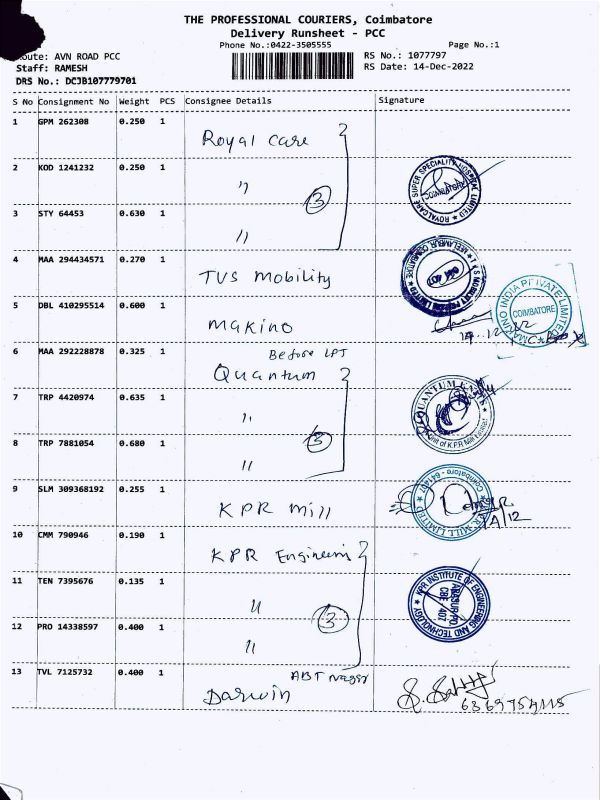 THE PROFESSIONAL COURIERS, Coimbatore
Delivery Runsheet - PCC
Phone No.:0422-3505555 Page No.:1
oute: AVN ROAD PCC RS No.: 1077797
Staff: RAMESH RS Date: 14-Dec-2022
DRS No.: DCJB107779701
S No Consignment No Weight PCS Consignee Details Signature
1 GPM 262308 0.250 1
Royal care
2 KOD 1241232 0.250 1
" 3
ROYALCARE SUPER SPECIALITY HOSPITAL LIMITED COIMBATORE
3 STY 64453 0.630 1
"
4 MAA 294434571 0.270 1
TVS Mobility
5 DBL 410295514 0.600 1
MAKINO INDIA PRIVATE LIMITED COIMBATORE
Makino
14.12.22
6 MAA 292228878 0.325 1
Before LPT
Quantum
7 TRP 4420974 0.635 1
"
QUANTUM KNITS
8 TRP 7881054 0.680 1
3
"
9 SLM 309368192 0.255 1
KPR Mill
MILL LIMITED Coimbatore - 641407
10 CMM 790946 0.190 1
KPR Engineering
11 TEN 7395676 0.135 1
"
KPR INSTITUTE OF ENGINEERING AND TECHNOLOGY
ARASUR PO
CBE 407
12 PRO 14338597 0.400 1
3
"
13 TVL 7125732 0.400 1
ABT Nagar
Darwin
6369754115